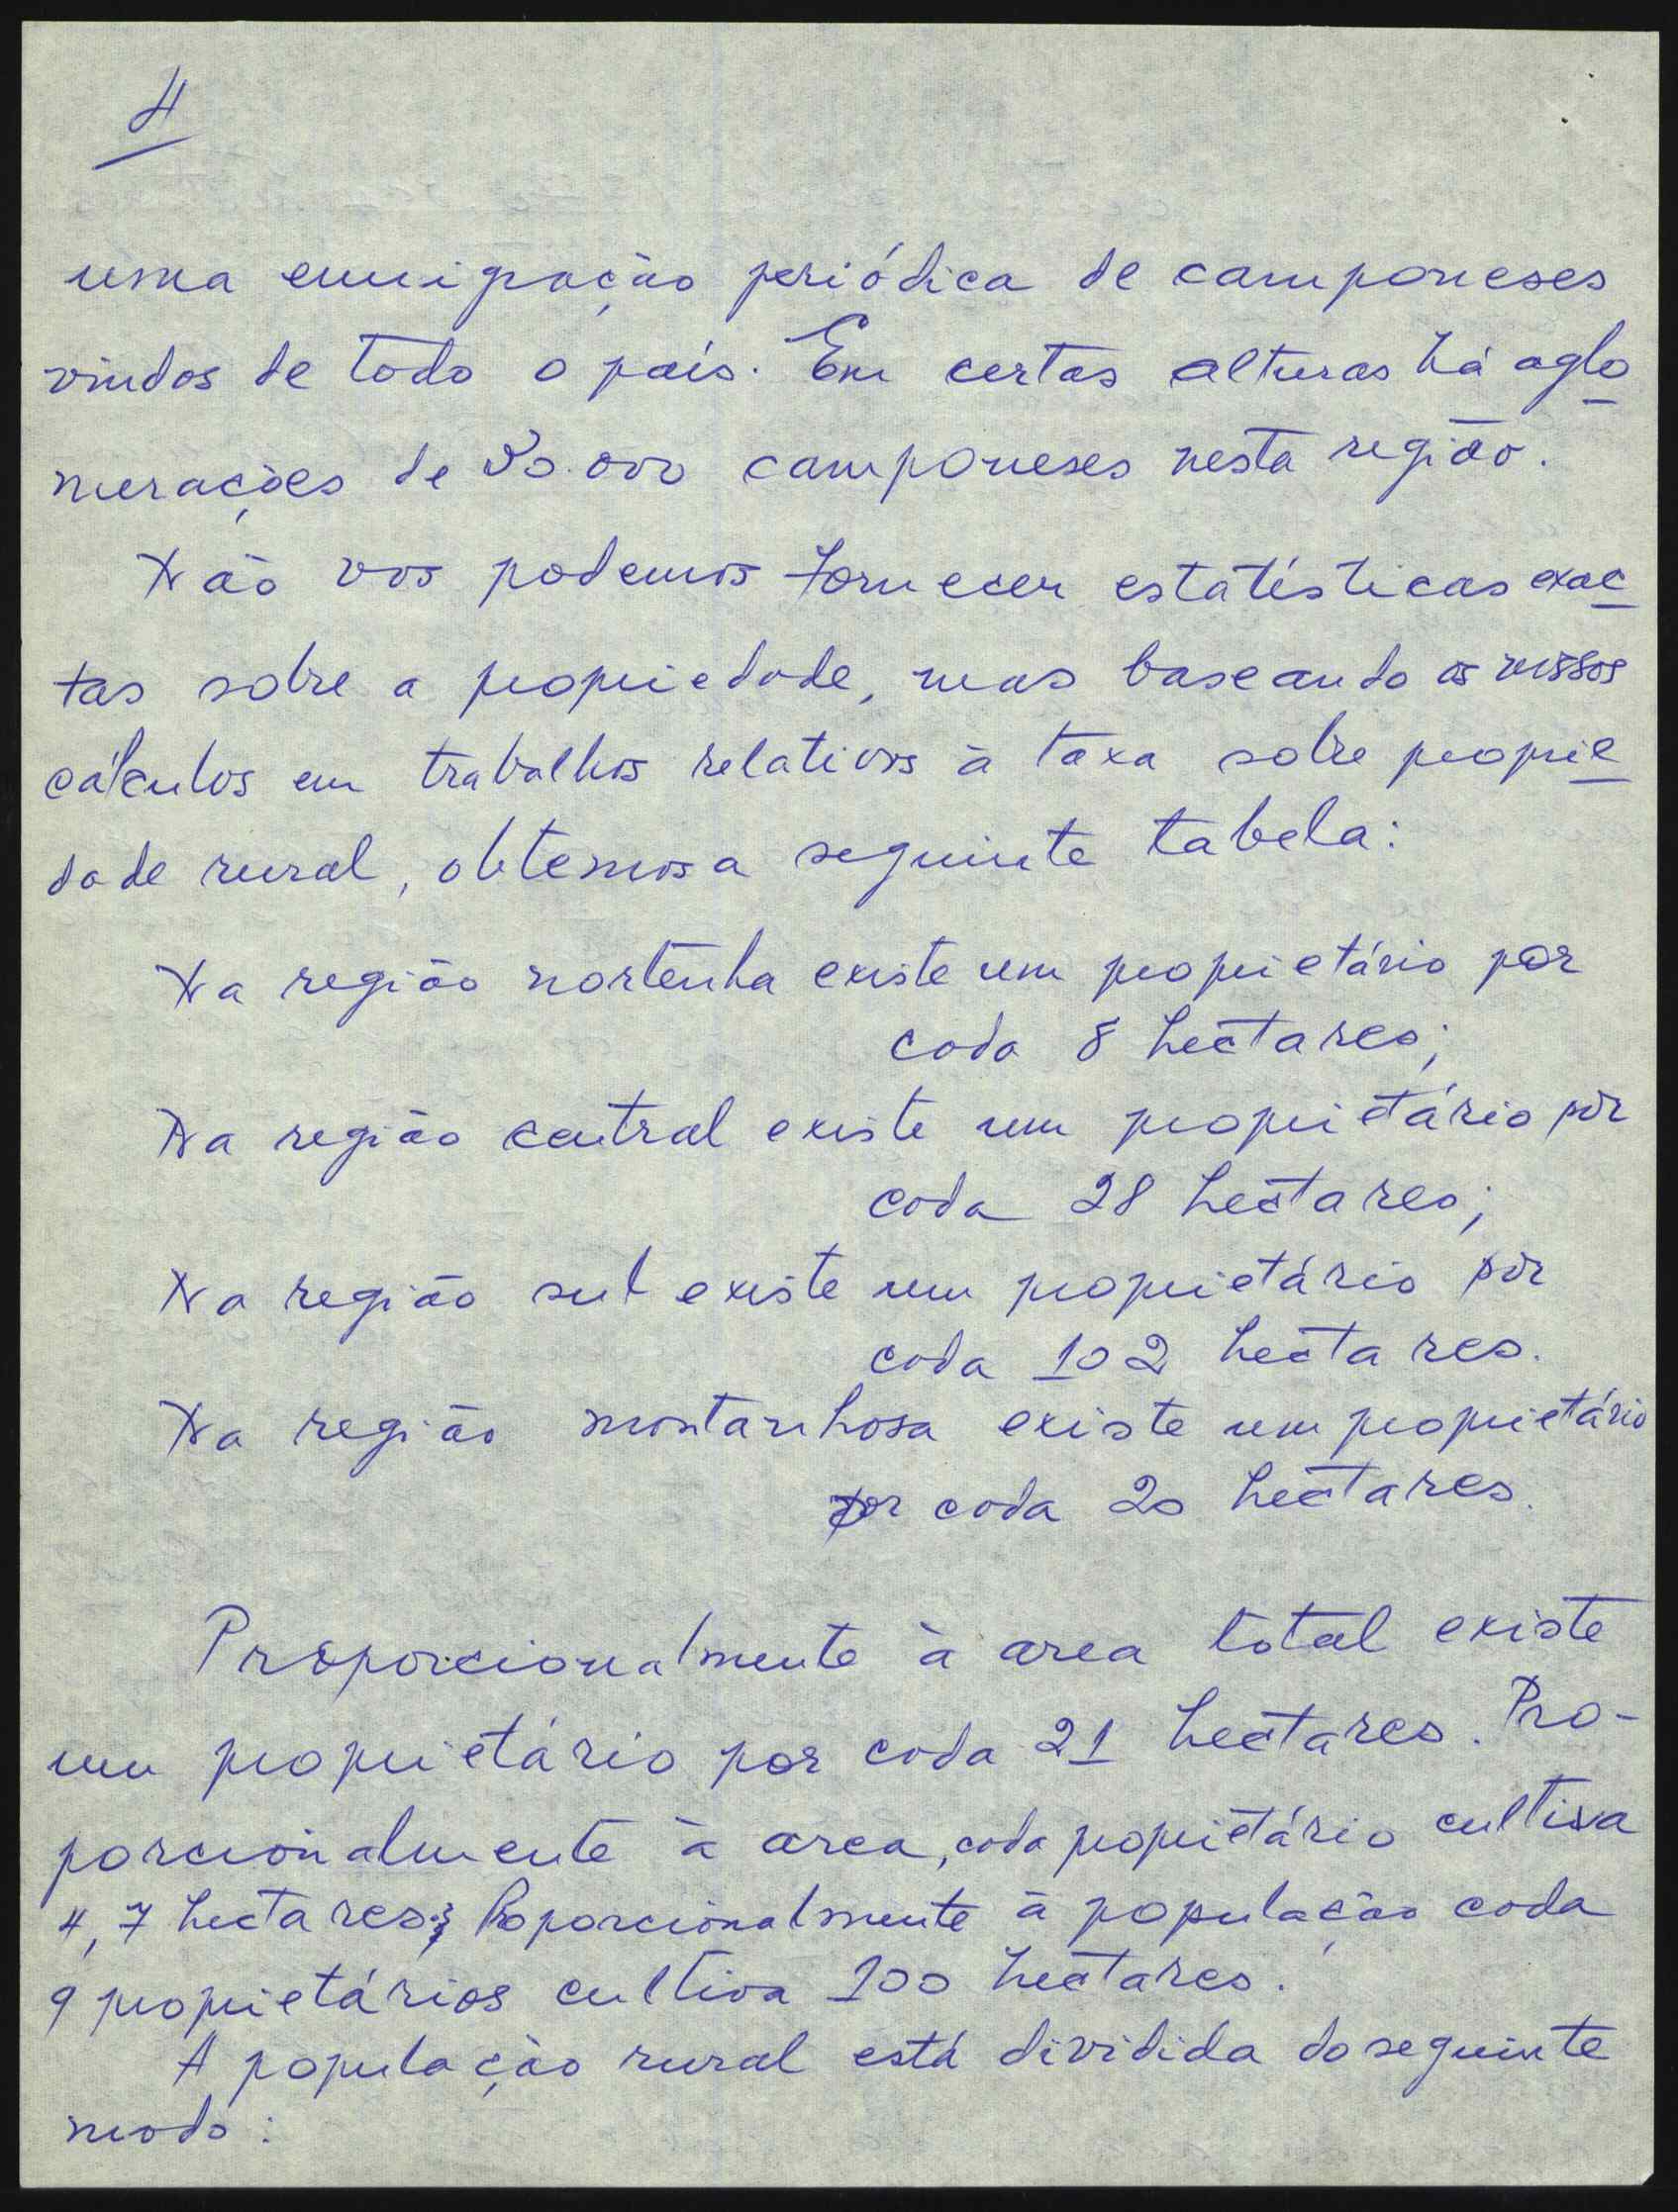 4
uma emigração periódica de camponeses
vindos de todo o país. Em certas alturas há aglo
merações de 30.000 camponeses nesta região.
Não vos podemos fornecer estatísticas exac
tas sobre a propriedade, mas baseando os nossos
cálculos em trabalhos relativos à taxa sobre proprie
dade rural, obtemos a seguinte tabela:
Na região nortenha existe um proprietário por
cada 8 hectares;
Na região central existe um proprietário por
cada 28 hectares;
Na região sul existe um proprietário por
cada 102 hectares.
Na região montanhosa existe um proprietário
por cada 20 hectares.
Proporcionalmente à area total existe
um proprietário por cada 21 hectares. Pro-
porcionalmente à area, cada proprietário cultiva
4,7 hectares; Proporcionalmente à população cada
9 proprietários cultiva 100 hectares.
A população rural está dividida do seguinte
modo: